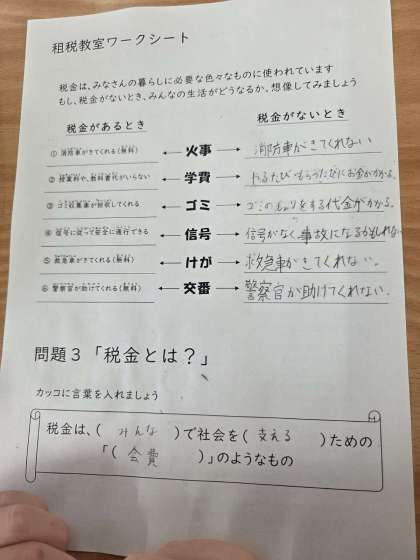 租税教室ワークシート
税金は、みなさんの暮らしに必要な色々なものに使われています
もし、税金がないとき、みんなの生活がどうなるか、想像してみましょう
税金があるとき 税金がないとき
① 消防車がきてくれる(無料) 火事 消防車がきてくれない
② 授業料や、教科書代がいらない 学費 やるたびもらうたびにお金がかかる。
③ ゴミ収集車が回収してくれる ゴミ ゴミのしょりをする代金がかかる。
④ 信号に従って安全に通行できる 信号 信号がなく、事故になるかもしれない
⑤ 救急車がきてくれる(無料) けが 救急車がきてくれない。
⑥ 警察官が助けてくれる(無料) 交番 警察官が助けてくれない。
問題3「税金とは?」
カッコに言葉を入れましょう
税金は、( みんな )で社会を( 支える )ための
「( 会費 )」のようなもの